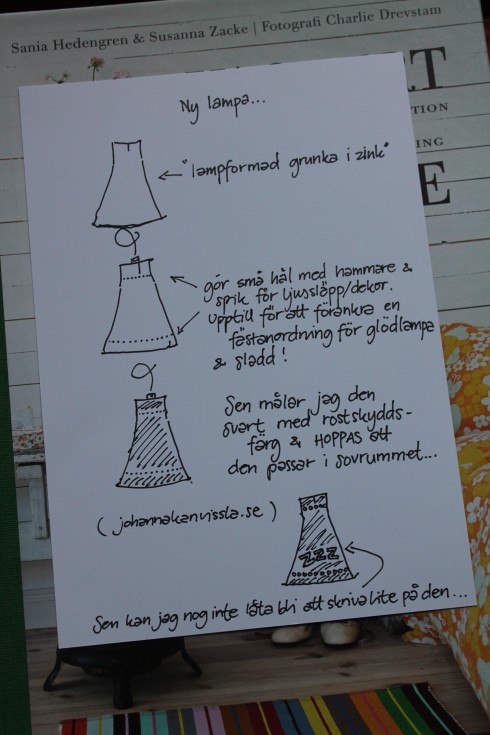 Sania Hedengren & Susanna Zacke | Fotografi Charlie Drevstam
RT
TION
ING
E
Ny lampa...
"lampformad grunka i zink"
gör små hål med hammare &
spik för ljussläpp/dekor.
Upptill för att förankra en
fästanordning för glödlampa
& sladd!
Sen målar jag den
svart med rostskydds-
färg & HOPPAS att
den passar i sovrummet...
(johannakanvissla.se)
ZZZ
Sen kan jag nog inte låta bli att skriva lite på den...